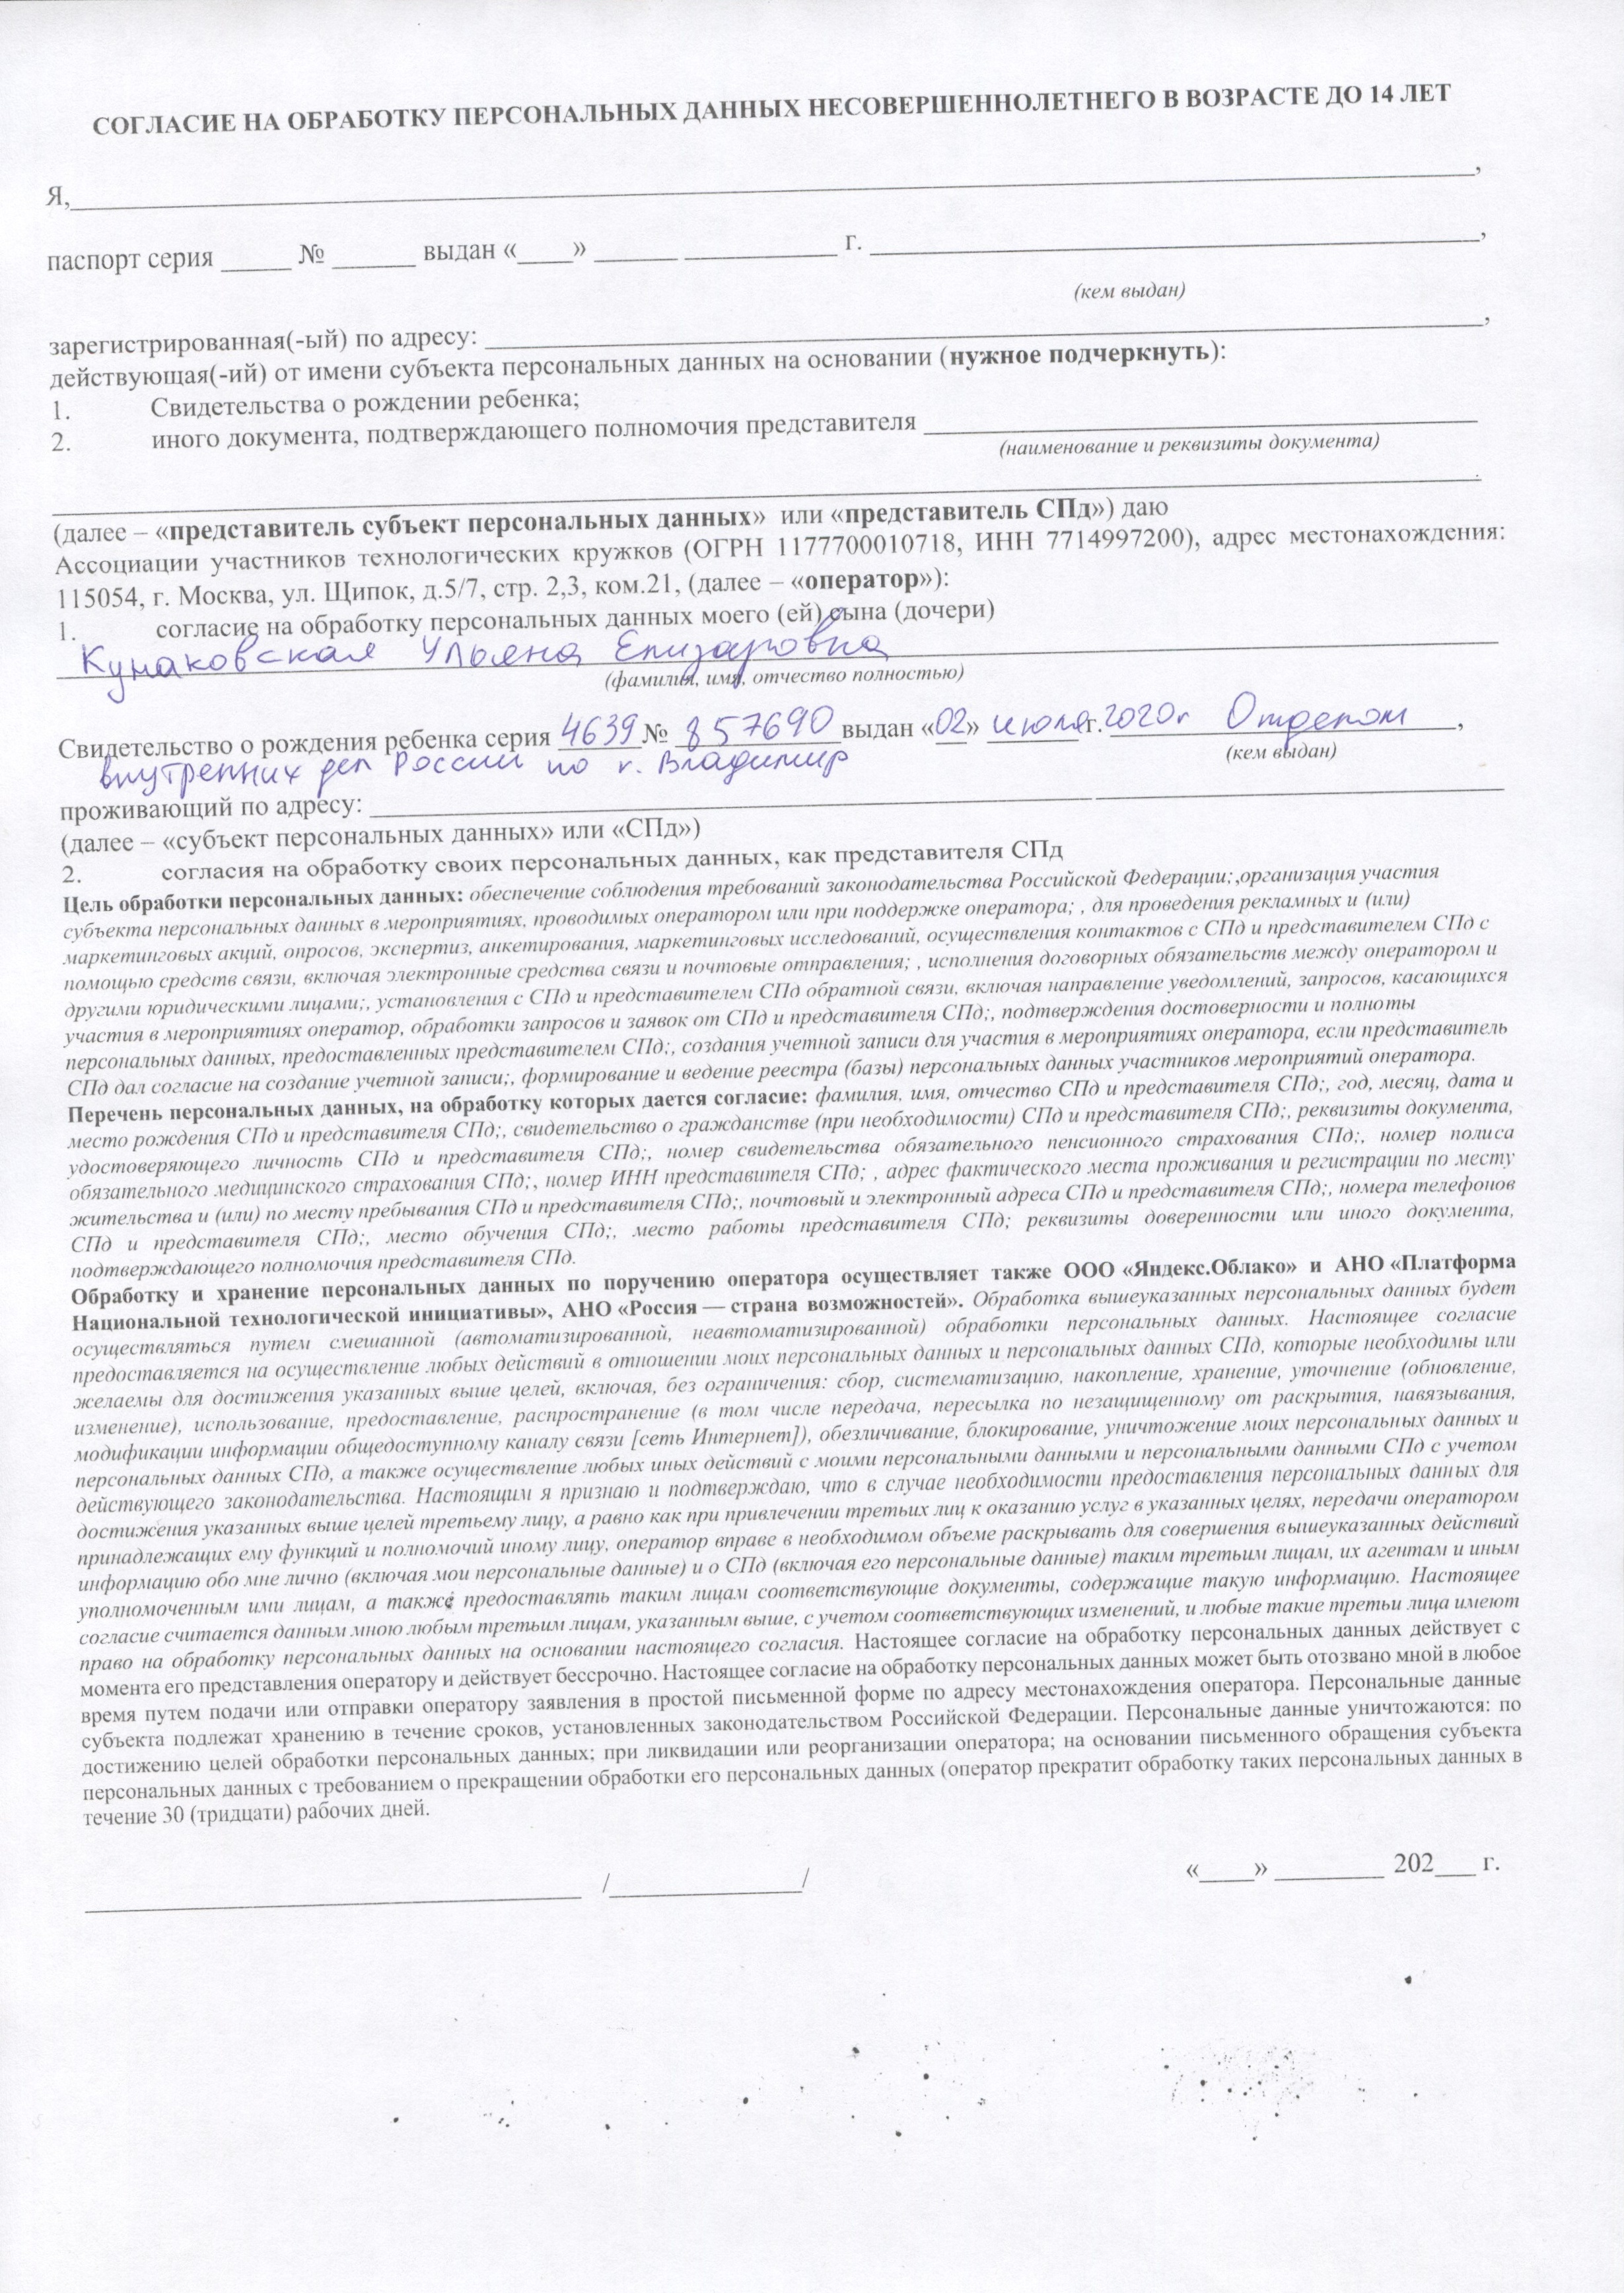 СОГЛАСИЕ НА ОБРАБОТКУ ПЕРСОНАЛЬНЫХ ДАННЫХ НЕСОВЕРШЕННОЛЕТНЕГО В ВОЗРАСТЕ ДО 14 ЛЕТ
Я,___,
паспорт серия _____ № ______ выдан «____» ______ ___________ г. ___,
(кем выдан)
зарегистрированная(-ый) по адресу: ___,
действующая(-ий) от имени субъекта персональных данных на основании (нужное подчеркнуть):
1. Свидетельства о рождении ребенка;
2. иного документа, подтверждающего полномочия представителя ___
(наименование и реквизиты документа)
___.
(далее – «представитель субъект персональных данных» или «представитель СПд») даю
Ассоциации участников технологических кружков (ОГРН 1177700010718, ИНН 7714997200), адрес местонахождения:
115054, г. Москва, ул. Щипок, д.5/7, стр. 2,3, ком.21, (далее – «оператор»):
1. согласие на обработку персональных данных моего (ей) сына (дочери)
Кунаковская Ульяна Елизаровна
(фамилия, имя, отчество полностью)
Свидетельство о рождения ребенка серия 4639 № 857690 выдан «02» июля г. 2020г Отделом,
(кем выдан)
внутренних дел России по г. Владимир
проживающий по адресу: ___
(далее – «субъект персональных данных» или «СПд»)
2. согласия на обработку своих персональных данных, как представителя СПд
Цель обработки персональных данных: обеспечение соблюдения требований законодательства Российской Федерации;,организация участия
субъекта персональных данных в мероприятиях, проводимых оператором или при поддержке оператора; , для проведения рекламных и (или)
маркетинговых акций, опросов, экспертиз, анкетирования, маркетинговых исследований, осуществления контактов с СПд и представителем СПд с
помощью средств связи, включая электронные средства связи и почтовые отправления; , исполнения договорных обязательств между оператором и
другими юридическими лицами;, установления с СПд и представителем СПд обратной связи, включая направление уведомлений, запросов, касающихся
участия в мероприятиях оператор, обработки запросов и заявок от СПд и представителя СПд;, подтверждения достоверности и полноты
персональных данных, предоставленных представителем СПд;, создания учетной записи для участия в мероприятиях оператора, если представитель
СПд дал согласие на создание учетной записи;, формирование и ведение реестра (базы) персональных данных участников мероприятий оператора.
Перечень персональных данных, на обработку которых дается согласие: фамилия, имя, отчество СПд и представителя СПд;, год, месяц, дата и
место рождения СПд и представителя СПд;, свидетельство о гражданстве (при необходимости) СПд и представителя СПд;, реквизиты документа,
удостоверяющего личность СПд и представителя СПд;, номер свидетельства обязательного пенсионного страхования СПд;, номер полиса
обязательного медицинского страхования СПд;, номер ИНН представителя СПд; , адрес фактического места проживания и регистрации по месту
жительства и (или) по месту пребывания СПд и представителя СПд;, почтовый и электронный адреса СПд и представителя СПд;, номера телефонов
СПд и представителя СПд;, место обучения СПд;, место работы представителя СПд; реквизиты доверенности или иного документа,
подтверждающего полномочия представителя СПд.
Обработку и хранение персональных данных по поручению оператора осуществляет также ООО «Яндекс.Облако» и АНО «Платформа
Национальной технологической инициативы», АНО «Россия — страна возможностей». Обработка вышеуказанных персональных данных будет
осуществляться путем смешанной (автоматизированной, неавтоматизированной) обработки персональных данных. Настоящее согласие
предоставляется на осуществление любых действий в отношении моих персональных данных и персональных данных СПд, которые необходимы или
желаемы для достижения указанных выше целей, включая, без ограничения: сбор, систематизацию, накопление, хранение, уточнение (обновление,
изменение), использование, предоставление, распространение (в том числе передача, пересылка по незащищенному от раскрытия, навязывания,
модификации информации общедоступному каналу связи [сеть Интернет]), обезличивание, блокирование, уничтожение моих персональных данных и
персональных данных СПд, а также осуществление любых иных действий с моими персональными данными и персональными данными СПд с учетом
действующего законодательства. Настоящим я признаю и подтверждаю, что в случае необходимости предоставления персональных данных для
достижения указанных выше целей третьему лицу, а равно как при привлечении третьих лиц к оказанию услуг в указанных целях, передачи оператором
принадлежащих ему функций и полномочий иному лицу, оператор вправе в необходимом объеме раскрывать для совершения вышеуказанных действий
информацию обо мне лично (включая мои персональные данные) и о СПд (включая его персональные данные) таким третьим лицам, их агентам и иным
уполномоченным ими лицам, а также предоставлять таким лицам соответствующие документы, содержащие такую информацию. Настоящее
согласие считается данным мною любым третьим лицам, указанным выше, с учетом соответствующих изменений, и любые такие третьи лица имеют
право на обработку персональных данных на основании настоящего согласия. Настоящее согласие на обработку персональных данных действует с
момента его представления оператору и действует бессрочно. Настоящее согласие на обработку персональных данных может быть отозвано мной в любое
время путем подачи или отправки оператору заявления в простой письменной форме по адресу местонахождения оператора. Персональные данные
субъекта подлежат хранению в течение сроков, установленных законодательством Российской Федерации. Персональные данные уничтожаются: по
достижению целей обработки персональных данных; при ликвидации или реорганизации оператора; на основании письменного обращения субъекта
персональных данных с требованием о прекращении обработки его персональных данных (оператор прекратит обработку таких персональных данных в
течение 30 (тридцати) рабочих дней.
___ /___/ «____» ________ 202___ г.